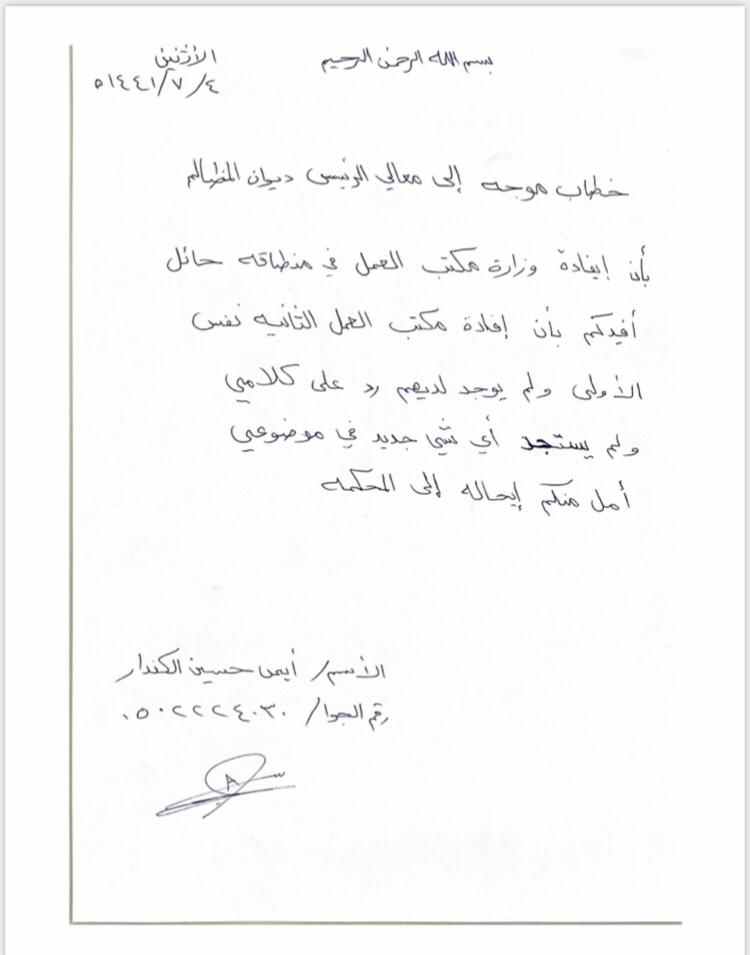 بسم الله الرحمن الرحيم
الأثنين
١٤٤١/٧/٤ه
خطاب موجه إلى معالي الرئيس ديوان المظالم
بأن إيفادة وزارة مكتب العمل في منطاقه حائل
أفيدكم بأن إفادة مكتب العمل الثانيه نفس
الأولى ولم يوجد لديهم رد على كلامي
ولم يستجد أي شي جديد في موضوعي
أمل منكم إيحاله إلى المحكمه
الأسم/ أيمن حسين الكندار
رقم الجوا/ ٠٥٠٢٢٢٤٠٣٠
A